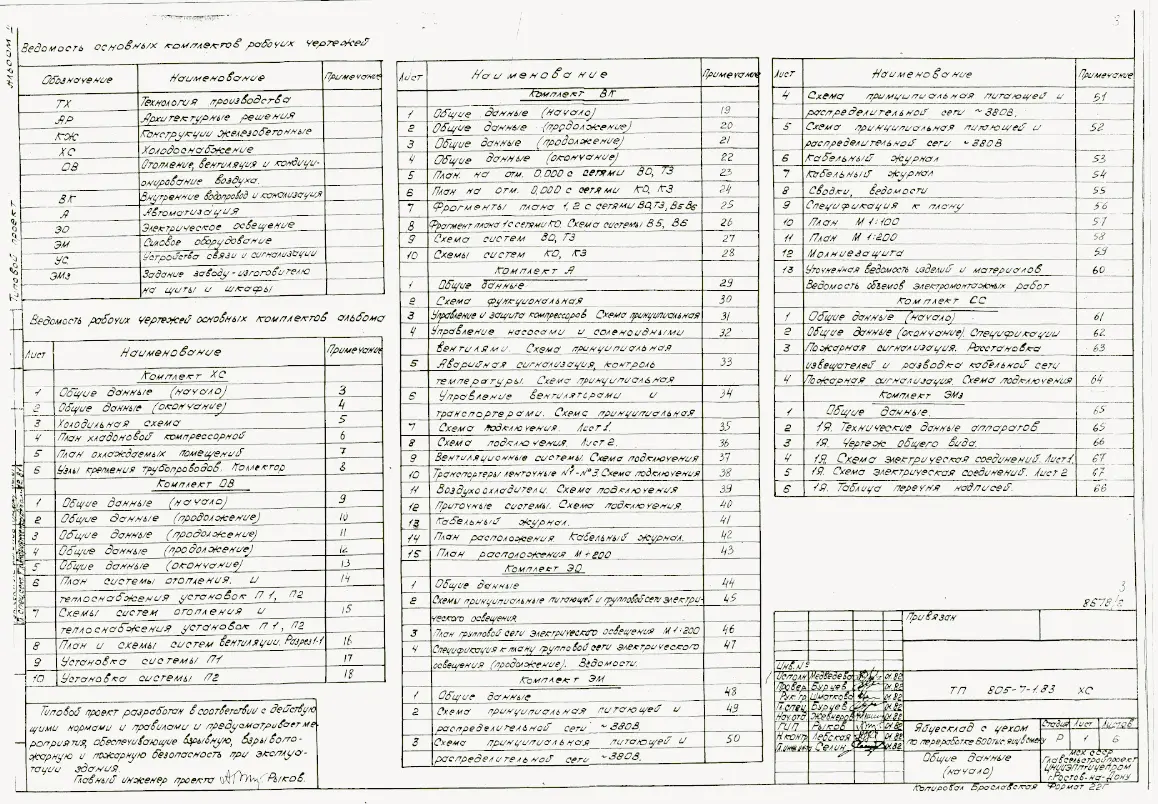 3
Альбом
Типовой проект
Ведомость основных комплектов рабочих чертежей
Обозначение Наименование Примечание
ТХ Технология производства
АР Архитектурные решения
КЖ Конструкции железобетонные
ХС Холодоснабжение
ОВ Отопление, вентиляция и кондици-
онирование воздуха.
ВК Внутренние водопровод и канализация
А Автоматизация
ЭО Электрическое освещение
ЭМ Силовое оборудование
УС Устройства связи и сигнализации
ЭМз Задание заводу-изготовителю
на щиты и шкафы
Ведомость рабочих чертежей основных комплектов альбома
Лист Наименование Примечание
Комплект ХС
1 Общие данные (начало) 3
2 Общие данные (окончание) 4
3 Холодильная схема 5
4 План хладоновой компрессорной 6
5 План охлаждаемых помещений 7
6 Узлы крепления трубопроводов. Коллектор 8
Комплект ОВ
1 Общие данные (начало) 9
2 Общие данные (продолжение) 10
3 Общие данные (продолжение) 11
4 Общие данные (продолжение) 12
5 Общие данные (окончание) 13
6 План системы отопления. и 14
теплоснабжения установок П1, П2
7 Схемы систем отопления и 15
теплоснабжения установок П1, П2
8 План и схемы систем вентиляции. Разрез 1-1 16
9 Установка системы П1 17
10 Установка системы П2 18
Типовой проект разработан в соответствии с действую
щими нормами и правилами и предусматривает ме-
роприятия, обеспечивающие взрывную, взрывопо-
жарную и пожарную безопасность при эксплуа-
тации здания.
Главный инженер проекта Рыков.
Лист Наименование Примечание
Комплект ВК
1 Общие данные (начало) 19
2 Общие данные (продолжение) 20
3 Общие данные (продолжение) 21
4 Общие данные (окончание) 22
5 План. на отм. 0.000 с сетями ВО, ТЗ 23
6 План на отм. 0,000 с сетями КО, КЗ 24
7 Фрагменты плана 1,2 с сетями ВО,ТЗ, В5 В6 25
8 Фрагмент плана 1 с сетями КО. Схема системы В5, В6 26
9 Схема систем ВО, ТЗ 27
10 Схемы систем КО, КЗ 28
Комплект А
1 Общие данные 29
2 Схема функциональная 30
3 Управление и защита компрессоров Схема принципиальная 31
4 Управление насосами и соленоидными 32
вентилями. Схема принципиальная
5 Аварийная сигнализация, контроль 33
температуры. Схема принципиальная
6 Управление вентиляторами и 34
транспортерами. Схема принципиальная
7 Схема подключения. Лист 1. 35
8 Схема подключения. Лист 2. 36
9 Вентиляционные системы. Схема подключения 37
10 Транспортеры ленточные №1-№3. Схема подключения 38
11 Воздухоохладители. Схема подключения 39
12 Приточные системы. Схема подключения 40
13 Кабельный журнал. 41
14 План расположения Кабельный журнал. 42
15 План расположения М 1:200 43
Комплект ЭО
1 Общие данные 44
2 Схемы принципиальные питающей и групповой сети электри- 45
ческого освещения
3 План групповой сети электрического освещения М 1:200 46
4 Спецификация к плану групповой сети электрического 47
освещения (продолжение). Ведомости.
Комплект ЭМ
1 Общие данные 48
2 Схема принципиальная питающей и 49
распределительной сети ~380В.
3 Схема принципиальная питающей и 50
распределительной сети ~380В.
Лист Наименование Примечание
4 Схема принципиальная питающей и 51
распределительной сети ~380В.
5 Схема принципиальная питающей и 52
распределительной сети ~380В
6 Кабельный журнал 53
7 Кабельный журнал 54
8 Сводки, ведомости 55
9 Спецификация к плану 56
10 План М 1:100 57
11 План М 1:200 58
12 Молниезащита 59
13 Уточненная ведомость изделий и материалов 60
Ведомость объемов электромонтажных работ
Комплект СС
1 Общие данные (начало) 61
2 Общие данные (окончание). Спецификации 62
3 Пожарная сигнализация. Расстановка 63
извещателей и разводка кабельной сети
4 Пожарная сигнализация. Схема подключения 64
Комплект ЭМз
1 Общие данные. 65
2 1Я. Технические данные аппаратов 65
3 1Я. Чертеж общего вида. 66
4 1Я. Схема электрическая соединений. Лист 1. 67
5 1Я. Схема электрическая соединений. Лист 2 67
6 1Я. Таблица перечня надписей. 68
3
8678/2
Привязан
Инв.№
Исполн. Медведева 01.82
Провер. Бурцев
Рук.гр. Шматкова
Гл.спец. Бурцев
Нач.отд.
ГИП Рыков
Н.контр. Левская
Селин
ТП 805-7-1.83 ХС
Яйцесклад с цехом
по переработке 600 тыс. яиц в смену
Стадия Лист Листов
Р 1 6
Общие данные
(начало)
МСХ СССР
Главсельстройпроект
ЦНИИЭПптицепром
г. Ростов-на-Дону
Копировал Браславская Формат 22Г